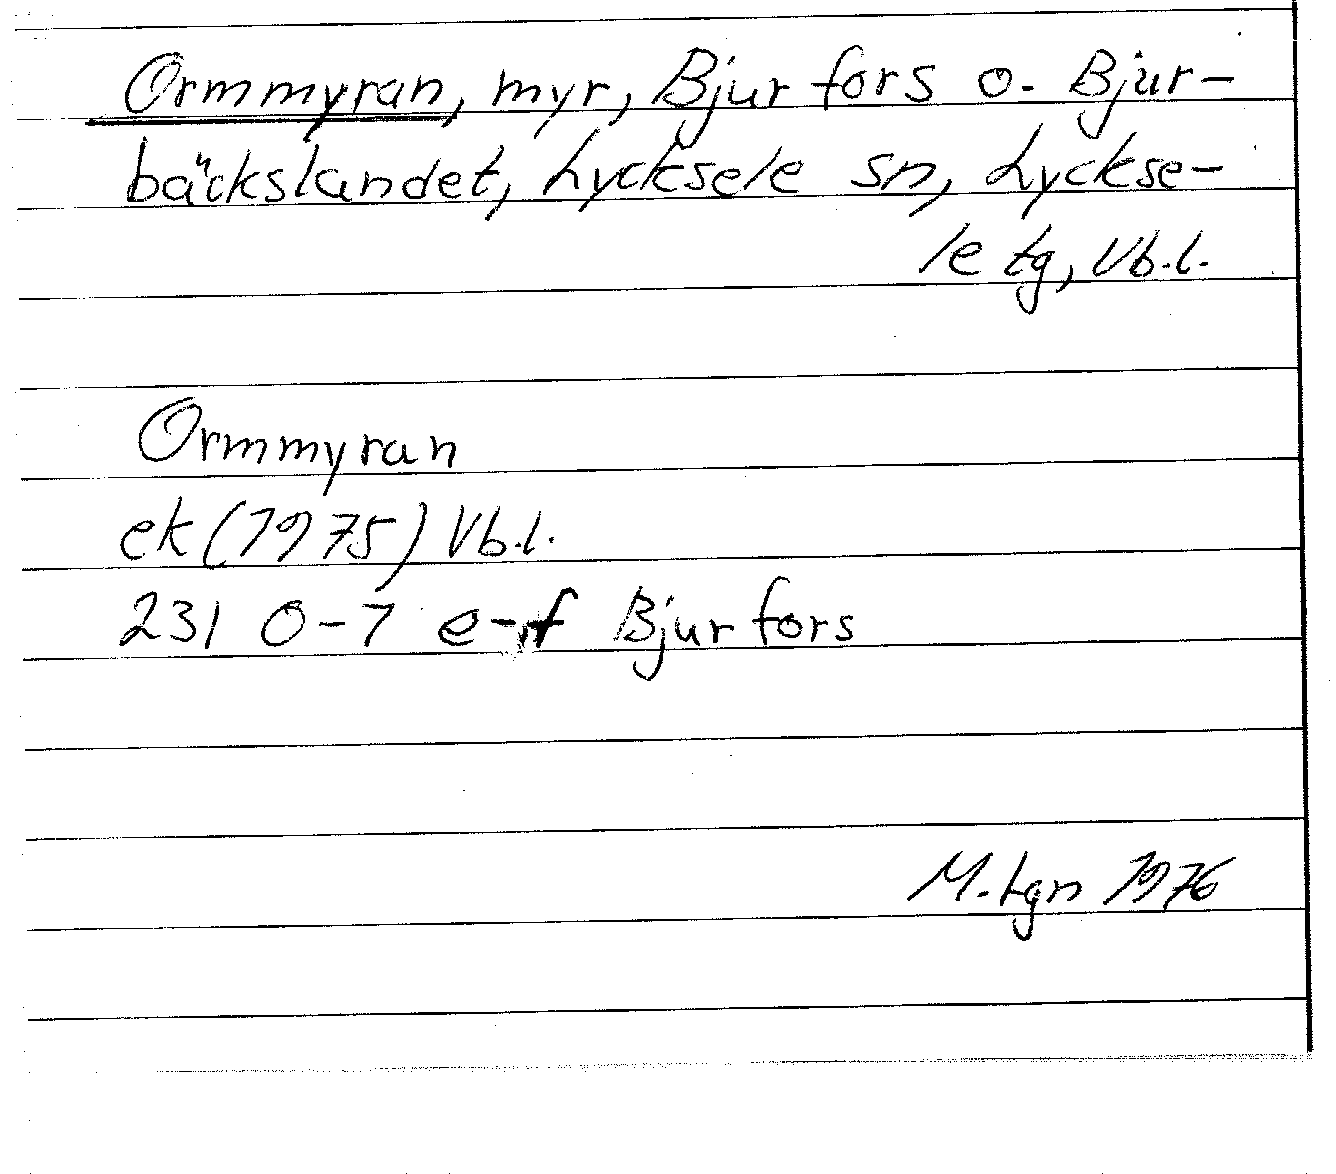 Ormmyran, myr, Bjurfors o. Bjur-
bäckslandet, Lycksele sn, Lyckse-
le tg, Vb.l.
Ormmyran
ek (1975) Vb.l.
231 0-7 e-f Bjurfors
M. Lgn 1976